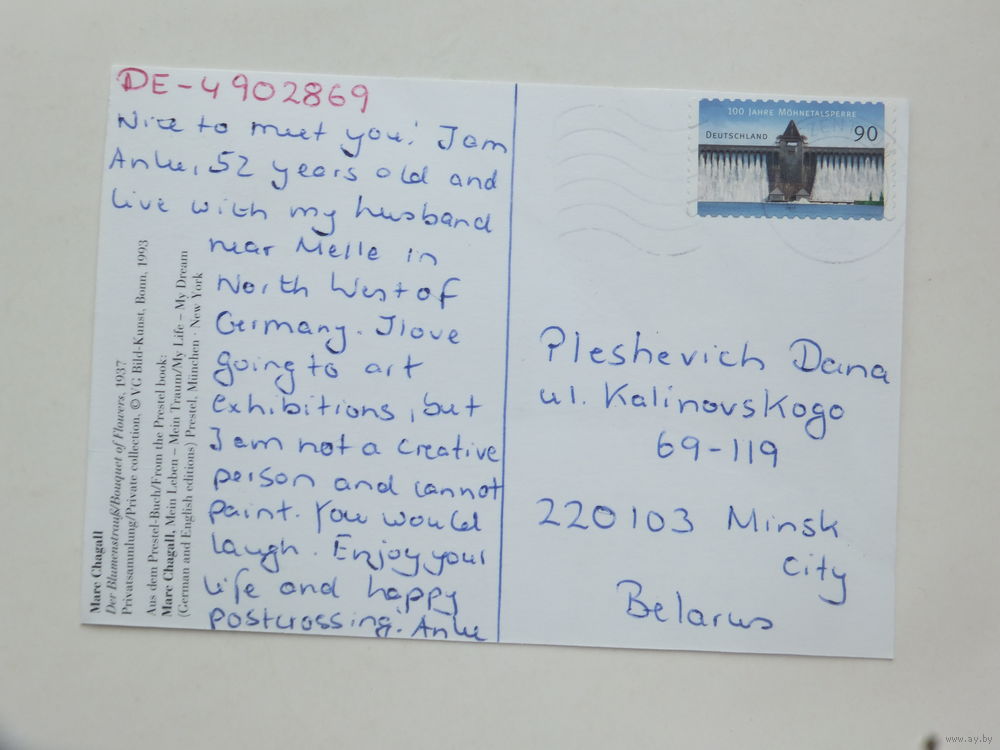 DE-4902869
Nice to meet you! I am
Anke, 52 years old and
live with my husband
near Melle in
North West of
Germany. I love
going to art
exhibitions, but
I am not a creative
person and cannot
paint. You would
laugh. Enjoy your
life and happy
postcrossing. Anke
Marc Chagall
Der Blumenstrauß/Bouquet of Flowers, 1937
Privatsammlung/Private collection, © VG Bild-Kunst, Bonn, 1993
Aus dem Prestel-Buch/From the Prestel book:
Marc Chagall, Mein Leben – Mein Traum/My Life – My Dream
(German and English editions) Prestel, München · New York
100 JAHRE MÖHNETALSPERRE
DEUTSCHLAND 90
Pleshevich Dana
ul. Kalinovskogo
69-119
220103 Minsk
City
Belarus
www.ay.by